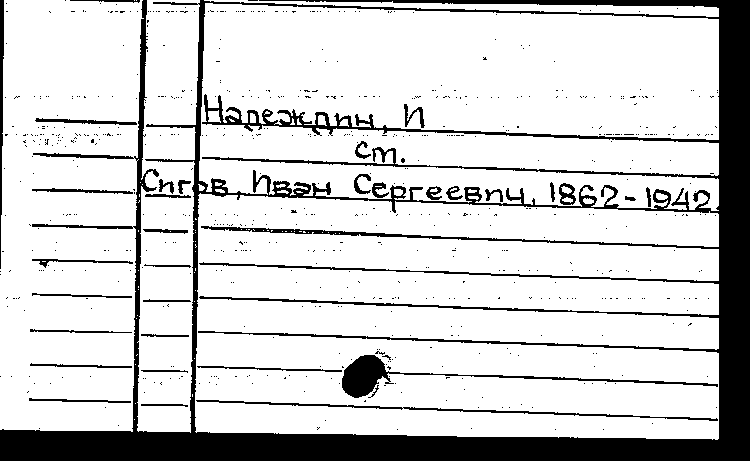 Надеждин, И
см.
Сигов, Иван Сергеевич, 1862-1942.